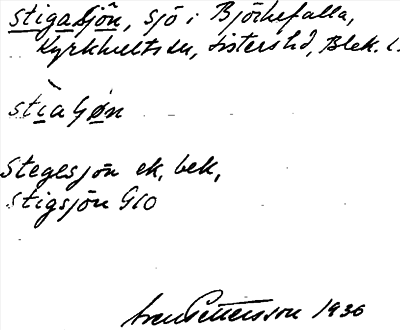 stigaSjön, sjö i Björkefalla,
Kyrkhults sn, Listers hd, Blek. l.
stìaſjøn
Stegesjön ek, bek,
Stigsjön GlO
Sven Pettersson 1936